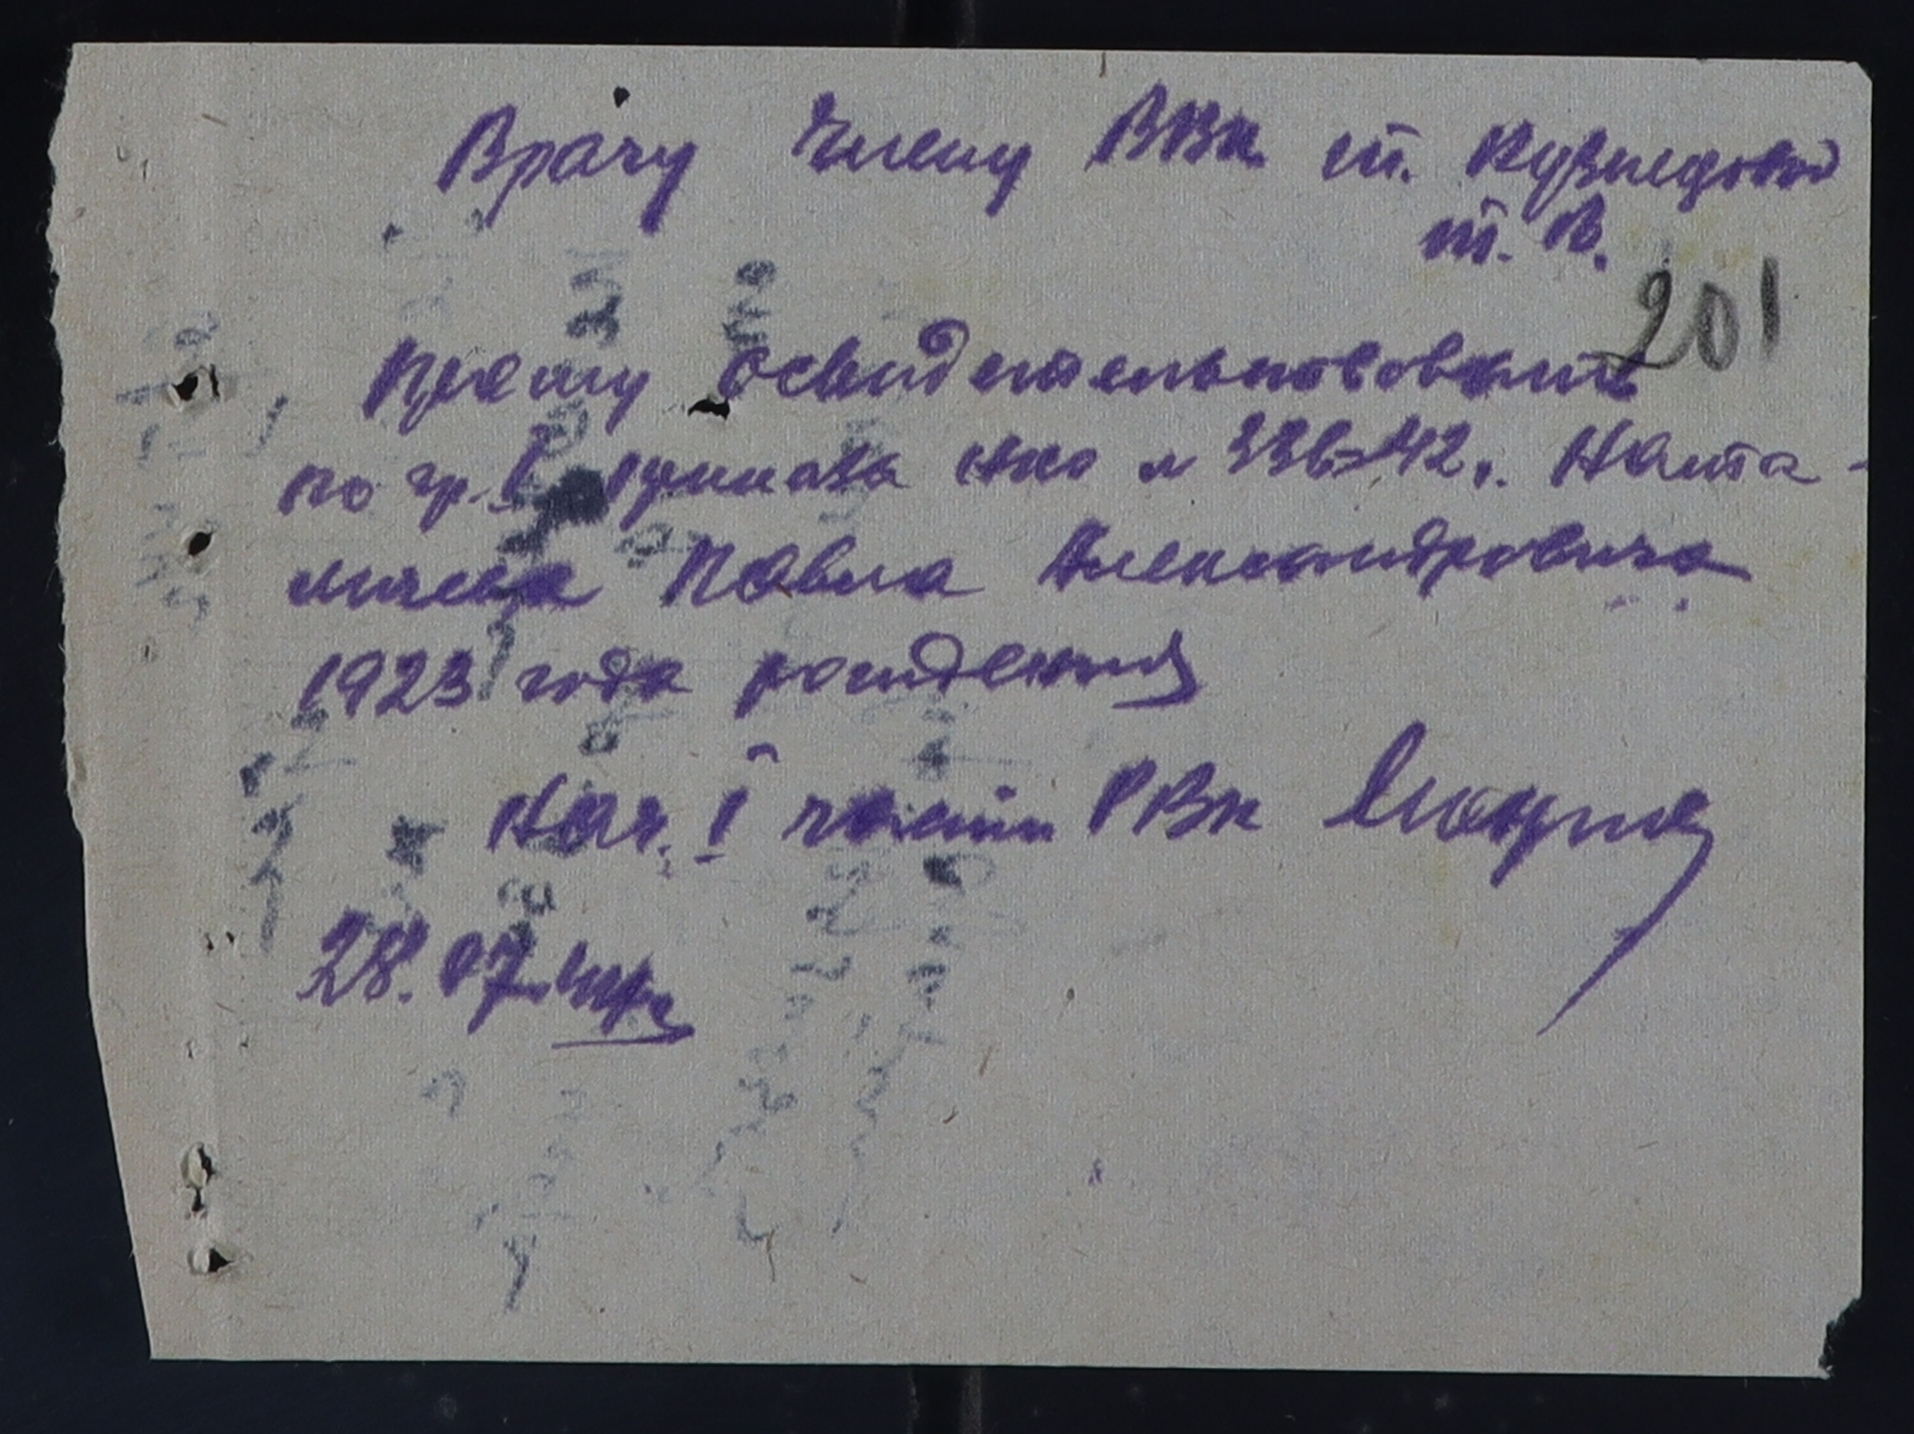 Врачу Члену ВВК т. Кузнецовой
т. В.
201
Прошу освидетельствовать
по гр. I приказа НКО № 336-42г. Налта-
Павла Александровича
1923 года рождения
Нач. I части РВК
28.07.44г